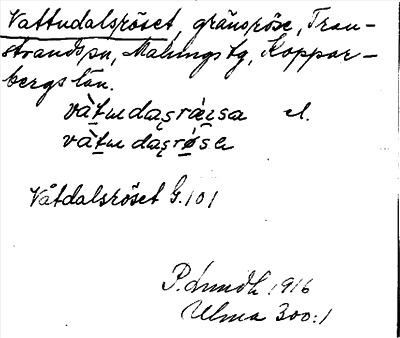 Vattudalsröset, gränsröse, Tran-
strands sn, Malungs tg, Koppar-
bergs län.
vàtudasrǽisa el.
vàtudasrøsa
Våtdalsröset G. 101
P. Lundh 1916
Ulma 300:1